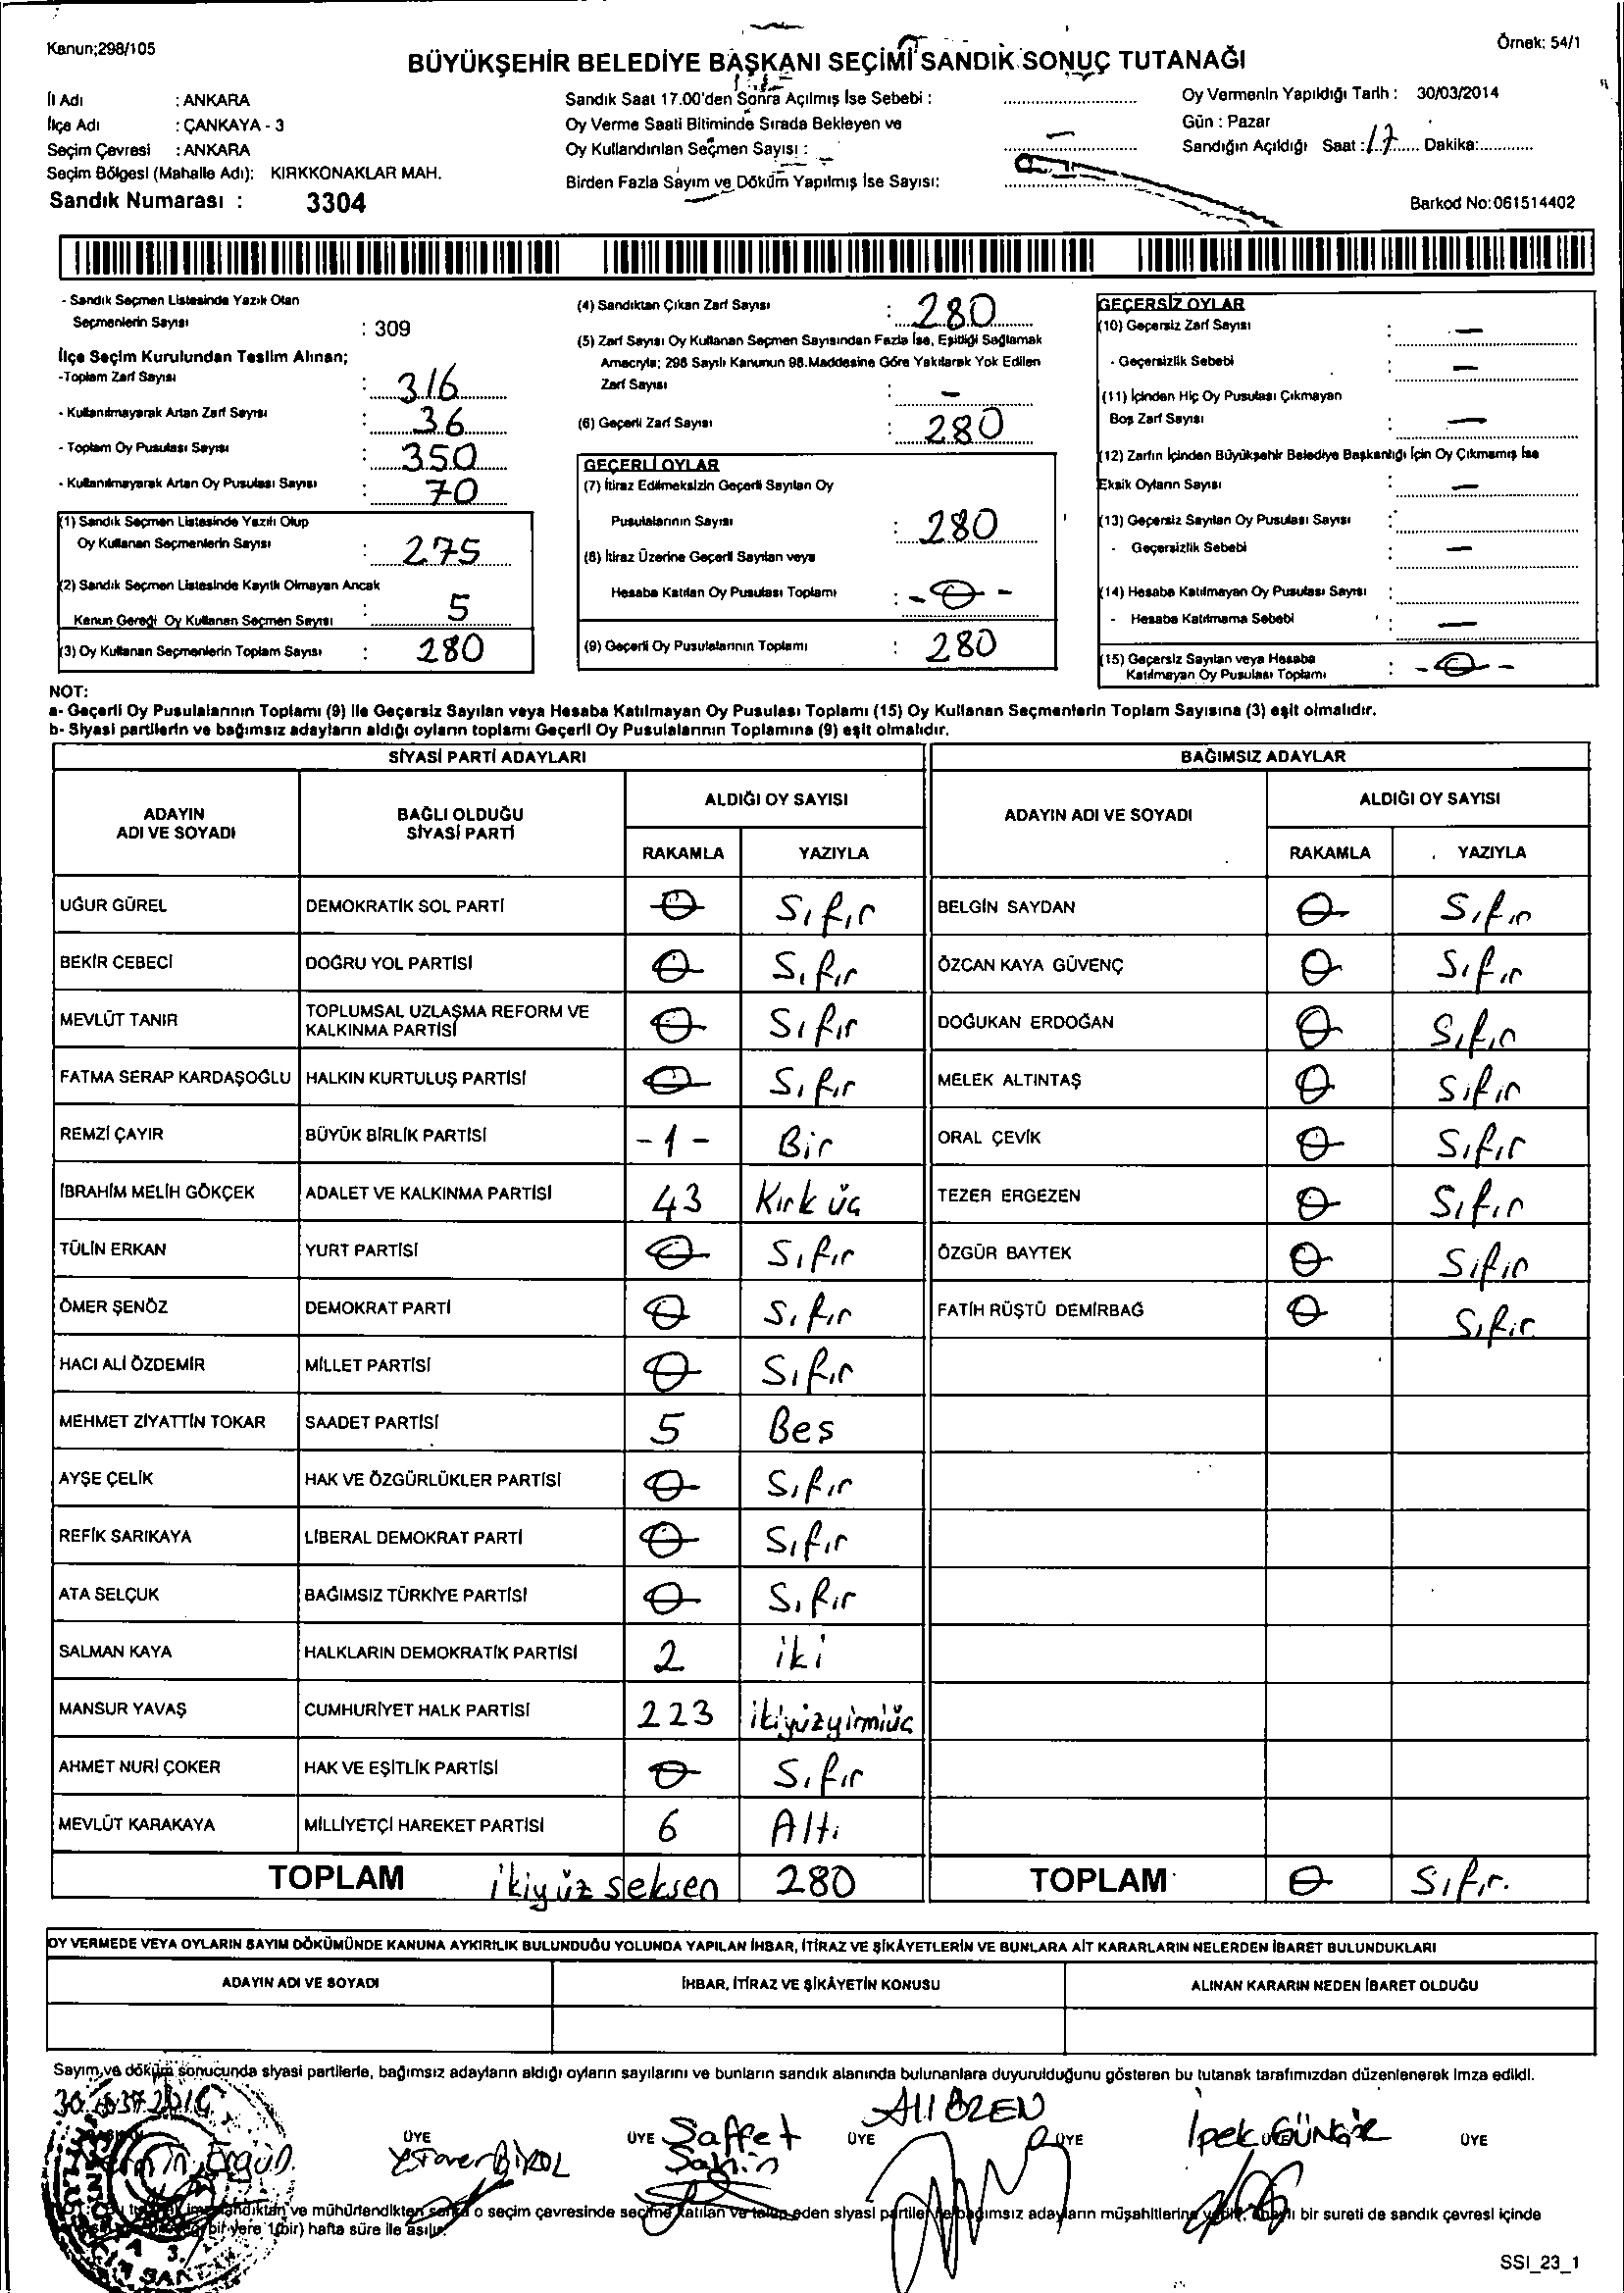 Kanun;298/105
Örnek: 54/1
BÜYÜKŞEHİR BELEDİYE BAŞKANI SEÇİMİ SANDIK SONUÇ TUTANAĞI
İl Adı : ANKARA
İlçe Adı : ÇANKAYA - 3
Seçim Çevresi : ANKARA
Seçim Bölgesi (Mahalle Adı): KIRKKONAKLAR MAH.
Sandık Numarası : 3304
Sandık Saat 17.00'den Sonra Açılmış İse Sebebi :
Oy Verme Saati Bitiminde Sırada Bekleyen ve
Oy Kullandırılan Seçmen Sayısı : —
Birden Fazla Sayım ve Döküm Yapılmış İse Sayısı:
Oy Vermenin Yapıldığı Tarih : 30/03/2014
Gün : Pazar
Sandığın Açıldığı Saat : 17 Dakika:
Barkod No:061514402
- Sandık Seçmen Listesinde Yazılı Olan
Seçmenlerin Sayısı : 309
İlçe Seçim Kurulundan Teslim Alınan;
-Toplam Zarf Sayısı : 316
- Kullanılmayarak Artan Zarf Sayısı : 36
- Toplam Oy Pusulası Sayısı : 350
- Kullanılmayarak Artan Oy Pusulası Sayısı : 70
(1) Sandık Seçmen Listesinde Yazılı Olup
Oy Kullanan Seçmenlerin Sayısı : 275
(2) Sandık Seçmen Listesinde Kayıtlı Olmayan Ancak
Kanun Gereği Oy Kullanan Seçmen Sayısı : 5
(3) Oy Kullanan Seçmenlerin Toplam Sayısı : 280
(4) Sandıktan Çıkan Zarf Sayısı : 280
(5) Zarf Sayısı Oy Kullanan Seçmen Sayısından Fazla İse, Eşitliği Sağlamak
Amacıyla; 298 Sayılı Kanunun 98.Maddesine Göre Yakılarak Yok Edilen
Zarf Sayısı : —
(6) Geçerli Zarf Sayısı : 280
GEÇERLİ OYLAR
(7) İtiraz Edilmeksizin Geçerli Sayılan Oy
Pusulalarının Sayısı : 280
(8) İtiraz Üzerine Geçerli Sayılan veya
Hesaba Katılan Oy Pusulası Toplamı : - 0 -
(9) Geçerli Oy Pusulalarının Toplamı : 280
GEÇERSİZ OYLAR
(10) Geçersiz Zarf Sayısı : —
- Geçersizlik Sebebi : —
(11) İçinden Hiç Oy Pusulası Çıkmayan
Boş Zarf Sayısı : —
(12) Zarfın İçinden Büyükşehir Belediye Başkanlığı İçin Oy Çıkmamış İse
Eksik Oyların Sayısı : —
(13) Geçersiz Sayılan Oy Pusulası Sayısı :
- Geçersizlik Sebebi : —
(14) Hesaba Katılmayan Oy Pusulası Sayısı :
- Hesaba Katılmama Sebebi : —
(15) Geçersiz Sayılan veya Hesaba
Katılmayan Oy Pusulası Toplamı : - 0 -
NOT:
a- Geçerli Oy Pusulalarının Toplamı (9) İle Geçersiz Sayılan veya Hesaba Katılmayan Oy Pusulası Toplamı (15) Oy Kullanan Seçmenlerin Toplam Sayısına (3) eşit olmalıdır.
b- Siyasi partilerin ve bağımsız adayların aldığı oyların toplamı Geçerli Oy Pusulalarının Toplamına (9) eşit olmalıdır.
SİYASİ PARTİ ADAYLARI
BAĞIMSIZ ADAYLAR
ADAYIN ADI VE SOYADI
BAĞLI OLDUĞU SİYASİ PARTİ
ALDIĞI OY SAYISI
RAKAMLA YAZIYLA
ADAYIN ADI VE SOYADI
ALDIĞI OY SAYISI
RAKAMLA YAZIYLA
UĞUR GÜREL DEMOKRATİK SOL PARTİ 0 Sıfır BELGİN SAYDAN 0 Sıfır
BEKİR CEBECİ DOĞRU YOL PARTİSİ 0 Sıfır ÖZCAN KAYA GÜVENÇ 0 Sıfır
MEVLÜT TANIR TOPLUMSAL UZLAŞMA REFORM VE KALKINMA PARTİSİ 0 Sıfır DOĞUKAN ERDOĞAN 0 Sıfır
FATMA SERAP KARDAŞOĞLU HALKIN KURTULUŞ PARTİSİ 0 Sıfır MELEK ALTINTAŞ 0 Sıfır
REMZİ ÇAYIR BÜYÜK BİRLİK PARTİSİ - 1 - Bir ORAL ÇEVİK 0 Sıfır
İBRAHİM MELİH GÖKÇEK ADALET VE KALKINMA PARTİSİ 43 Kırk üç TEZER ERGEZEN 0 Sıfır
TÜLİN ERKAN YURT PARTİSİ 0 Sıfır ÖZGÜR BAYTEK 0 Sıfır
ÖMER ŞENÖZ DEMOKRAT PARTİ 0 Sıfır FATİH RÜŞTÜ DEMİRBAĞ 0 Sıfır
HACI ALİ ÖZDEMİR MİLLET PARTİSİ 0 Sıfır
MEHMET ZİYATTİN TOKAR SAADET PARTİSİ 5 Bes
AYŞE ÇELİK HAK VE ÖZGÜRLÜKLER PARTİSİ 0 Sıfır
REFİK SARIKAYA LİBERAL DEMOKRAT PARTİ 0 Sıfır
ATA SELÇUK BAĞIMSIZ TÜRKİYE PARTİSİ 0 Sıfır
SALMAN KAYA HALKLARIN DEMOKRATİK PARTİSİ 2 iki
MANSUR YAVAŞ CUMHURİYET HALK PARTİSİ 223 ikiyüzyirmiüç
AHMET NURİ ÇOKER HAK VE EŞİTLİK PARTİSİ 0 Sıfır
MEVLÜT KARAKAYA MİLLİYETÇİ HAREKET PARTİSİ 6 Altı
TOPLAM ikiyüz seksen 280 TOPLAM 0 Sıfır.
OY VERMEDE VEYA OYLARIN SAYIM DÖKÜMÜNDE KANUNA AYKIRILIK BULUNDUĞU YOLUNDA YAPILAN İHBAR, İTİRAZ VE ŞİKÂYETLERİN VE BUNLARA AİT KARARLARIN NELERDEN İBARET BULUNDUKLARI
ADAYIN ADI VE SOYADI İHBAR, İTİRAZ VE ŞİKÂYETİN KONUSU ALINAN KARARIN NEDEN İBARET OLDUĞU
Sayım ve döküm sonucunda siyasi partilerle, bağımsız adayların aldığı oyların sayılarını ve bunların sandık alanında bulunanlara duyurulduğunu gösteren bu tutanak tarafımızdan düzenlenerek imza edildi.
ÜYE ÜYE Saffet Şahin ÜYE ALİ ÖZEN ÜYE İpek ÜYE
ve mühürlendikten sonra o seçim çevresinde seçime katılan ve talep eden siyasi partiler bağımsız adayların müşahitlerine bir sureti de sandık çevresi içinde
bir yere 1(bir) hafta süre ile asılır.
SSI_23_1